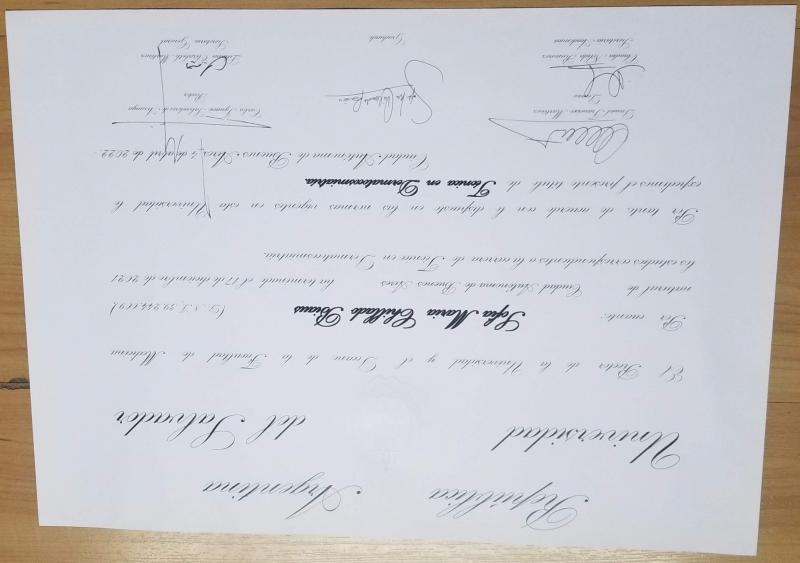 República Argentina
Universidad del Salvador
El Rector de la Universidad y el Decano de la Facultad de Medicina
Por cuanto: Sofia Maria Chillado Biaus (D.N.I. 39.244.009)
natural de Ciudad Autónoma de Buenos Aires ha terminado el 17 de diciembre de 2021
los estudios correspondientes a la carrera de Técnica en Dermatocosmiatría.
Por tanto, de acuerdo con lo dispuesto en las normas vigentes en esta Universidad le
expedimos el presente título de Técnica en Dermatocosmiatría
Ciudad Autónoma de Buenos Aires, de abril de 2022.
Martínez
Decano
Rector
Claudia
Secretaria Académica
Graduada
Secretaria General